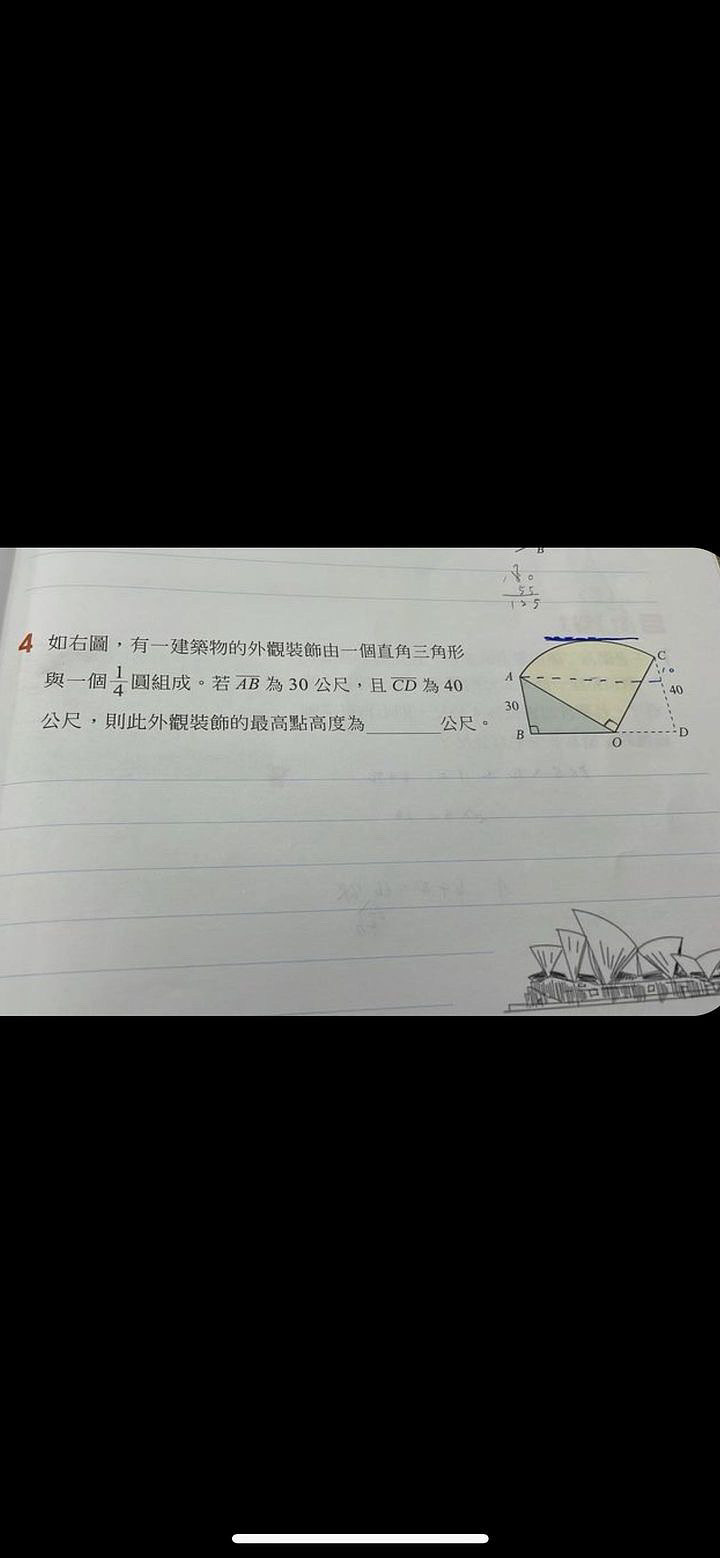 B
180
55
125
4 如右圖，有一建築物的外觀裝飾由一個直角三角形
與一個 1/4 圓組成。若 AB 為 30 公尺，且 CD 為 40
公尺，則此外觀裝飾的最高點高度為＿＿＿＿公尺。
C
A
10
40
30
B
O
D